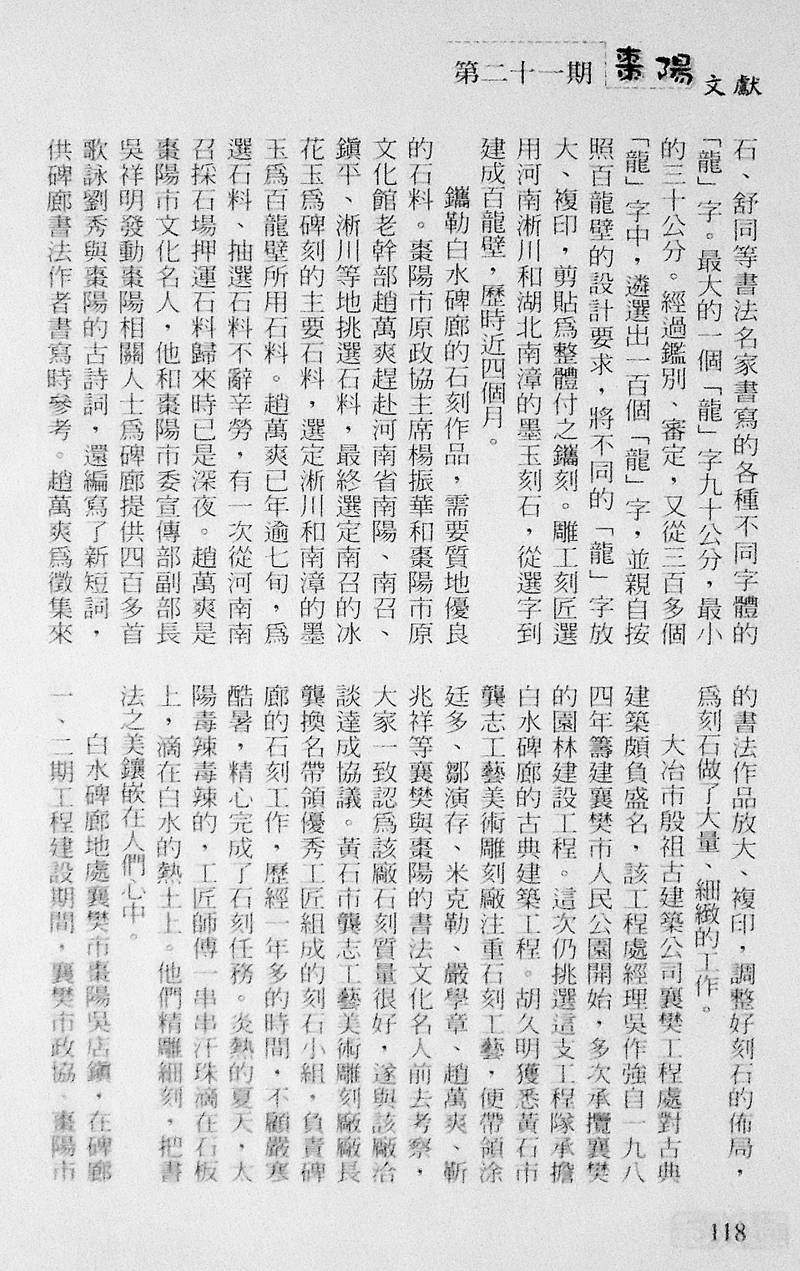 第二十一期 棗陽文獻
石、舒同等書法名家書寫的各種不同字體的
「龍」字。最大的一個「龍」字九十公分，最小
的三十公分。經過鑑別、審定，又從三百多個
「龍」字中，遴選出一百個「龍」字，並親自按
照百龍壁的設計要求，將不同的「龍」字放
大、複印，剪貼爲整體付之鐫刻。雕工刻匠選
用河南淅川和湖北南漳的墨玉刻石，從選字到
建成百龍壁，歷時近四個月。
鐫勒白水碑廊的石刻作品，需要質地優良
的石料。棗陽市原政協主席楊振華和棗陽市原
文化館老幹部趙萬爽趕赴河南省南陽、南召、
鎮平、淅川等地挑選石料，最終選定南召的冰
花玉爲碑刻的主要石料，選定淅川和南漳的墨
玉爲百龍壁所用石料。趙萬爽已年逾七旬，爲
選石料、抽選石料不辭辛勞，有一次從河南南
召採石場押運石料歸來時已是深夜。趙萬爽是
棗陽市文化名人，他和棗陽市委宣傳部副部長
吳祥明發動棗陽相關人士爲碑廊提供四百多首
歌詠劉秀與棗陽的古詩詞，還編寫了新短詞，
供碑廊書法作者書寫時參考。趙萬爽爲徵集來
的書法作品放大、複印，調整好刻石的佈局，
爲刻石做了大量、細緻的工作。
大冶市殷祖古建築公司襄樊工程處對古典
建築頗負盛名，該工程處經理吳作強自一九八
四年籌建襄樊市人民公園開始，多次承攬襄樊
的園林建設工程。這次仍挑選這支工程隊承擔
白水碑廊的古典建築工程。胡久明獲悉黃石市
龔志工藝美術雕刻廠注重石刻工藝，便帶領涂
廷多、鄒演存、米克勒、嚴學章、趙萬爽、靳
兆祥等襄樊與棗陽的書法文化名人前去考察，
大家一致認爲該廠石刻質量很好，遂與該廠洽
談達成協議。黃石市龔志工藝美術雕刻廠廠長
龔換名帶領優秀工匠組成的刻石小組，負責碑
廊的石刻工作，歷經一年多的時間，不顧嚴寒
酷暑，精心完成了石刻任務。炎熱的夏天，太
陽毒辣毒辣的，工匠師傅一串串汗珠滴在石板
上，滴在白水的熱土上。他們精雕細刻，把書
法之美鑲嵌在人們心中。
白水碑廊地處襄樊市棗陽吳店鎮，在碑廊
一、二期工程建設期間，襄樊市政協、棗陽市
118